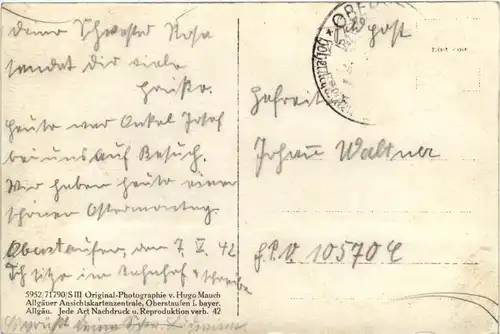 deine Schwester Rosa
sendet dir viele
Grüße.
Heute war Onkel Josef
bei uns auf Besuch.
Wir haben heute einen
schönen Ostermontag.
Oberstaufen, den 7. V. 42
Ich sitze im Bahnhof & schreibe
5952 71790/S III Original-Photographie v. Hugo Mauch
Allgäuer Ansichtskartenzentrale, Oberstaufen i. bayer.
Allgäu. Jede Art Nachdruck u. Reproduktion verb. 42
OBE
post
Gefreiter
Johann Waltner
F.P.N. 10570 C